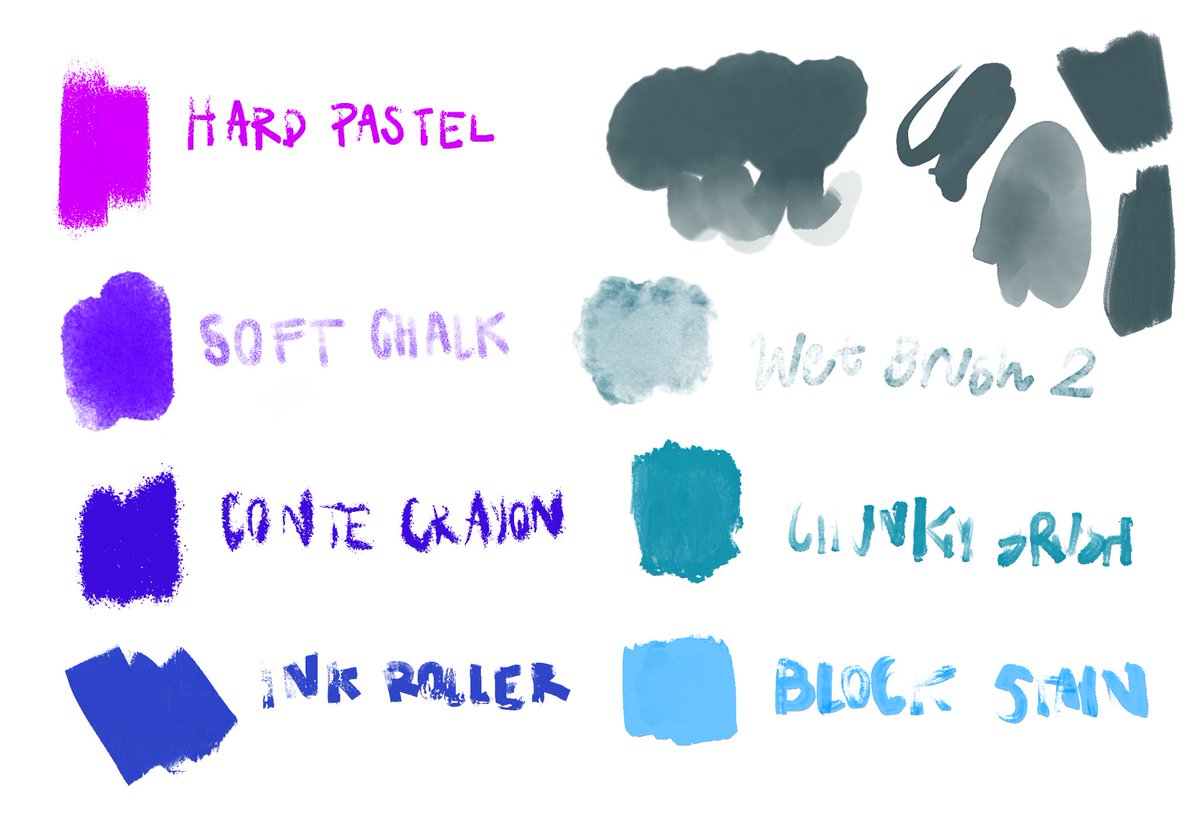 HARD PASTEL
SOFT CHALK
CONTE CRAYON
INK ROLLER
Wet Brush 2
CHUNKY BRUSH
BLOCK STAIN